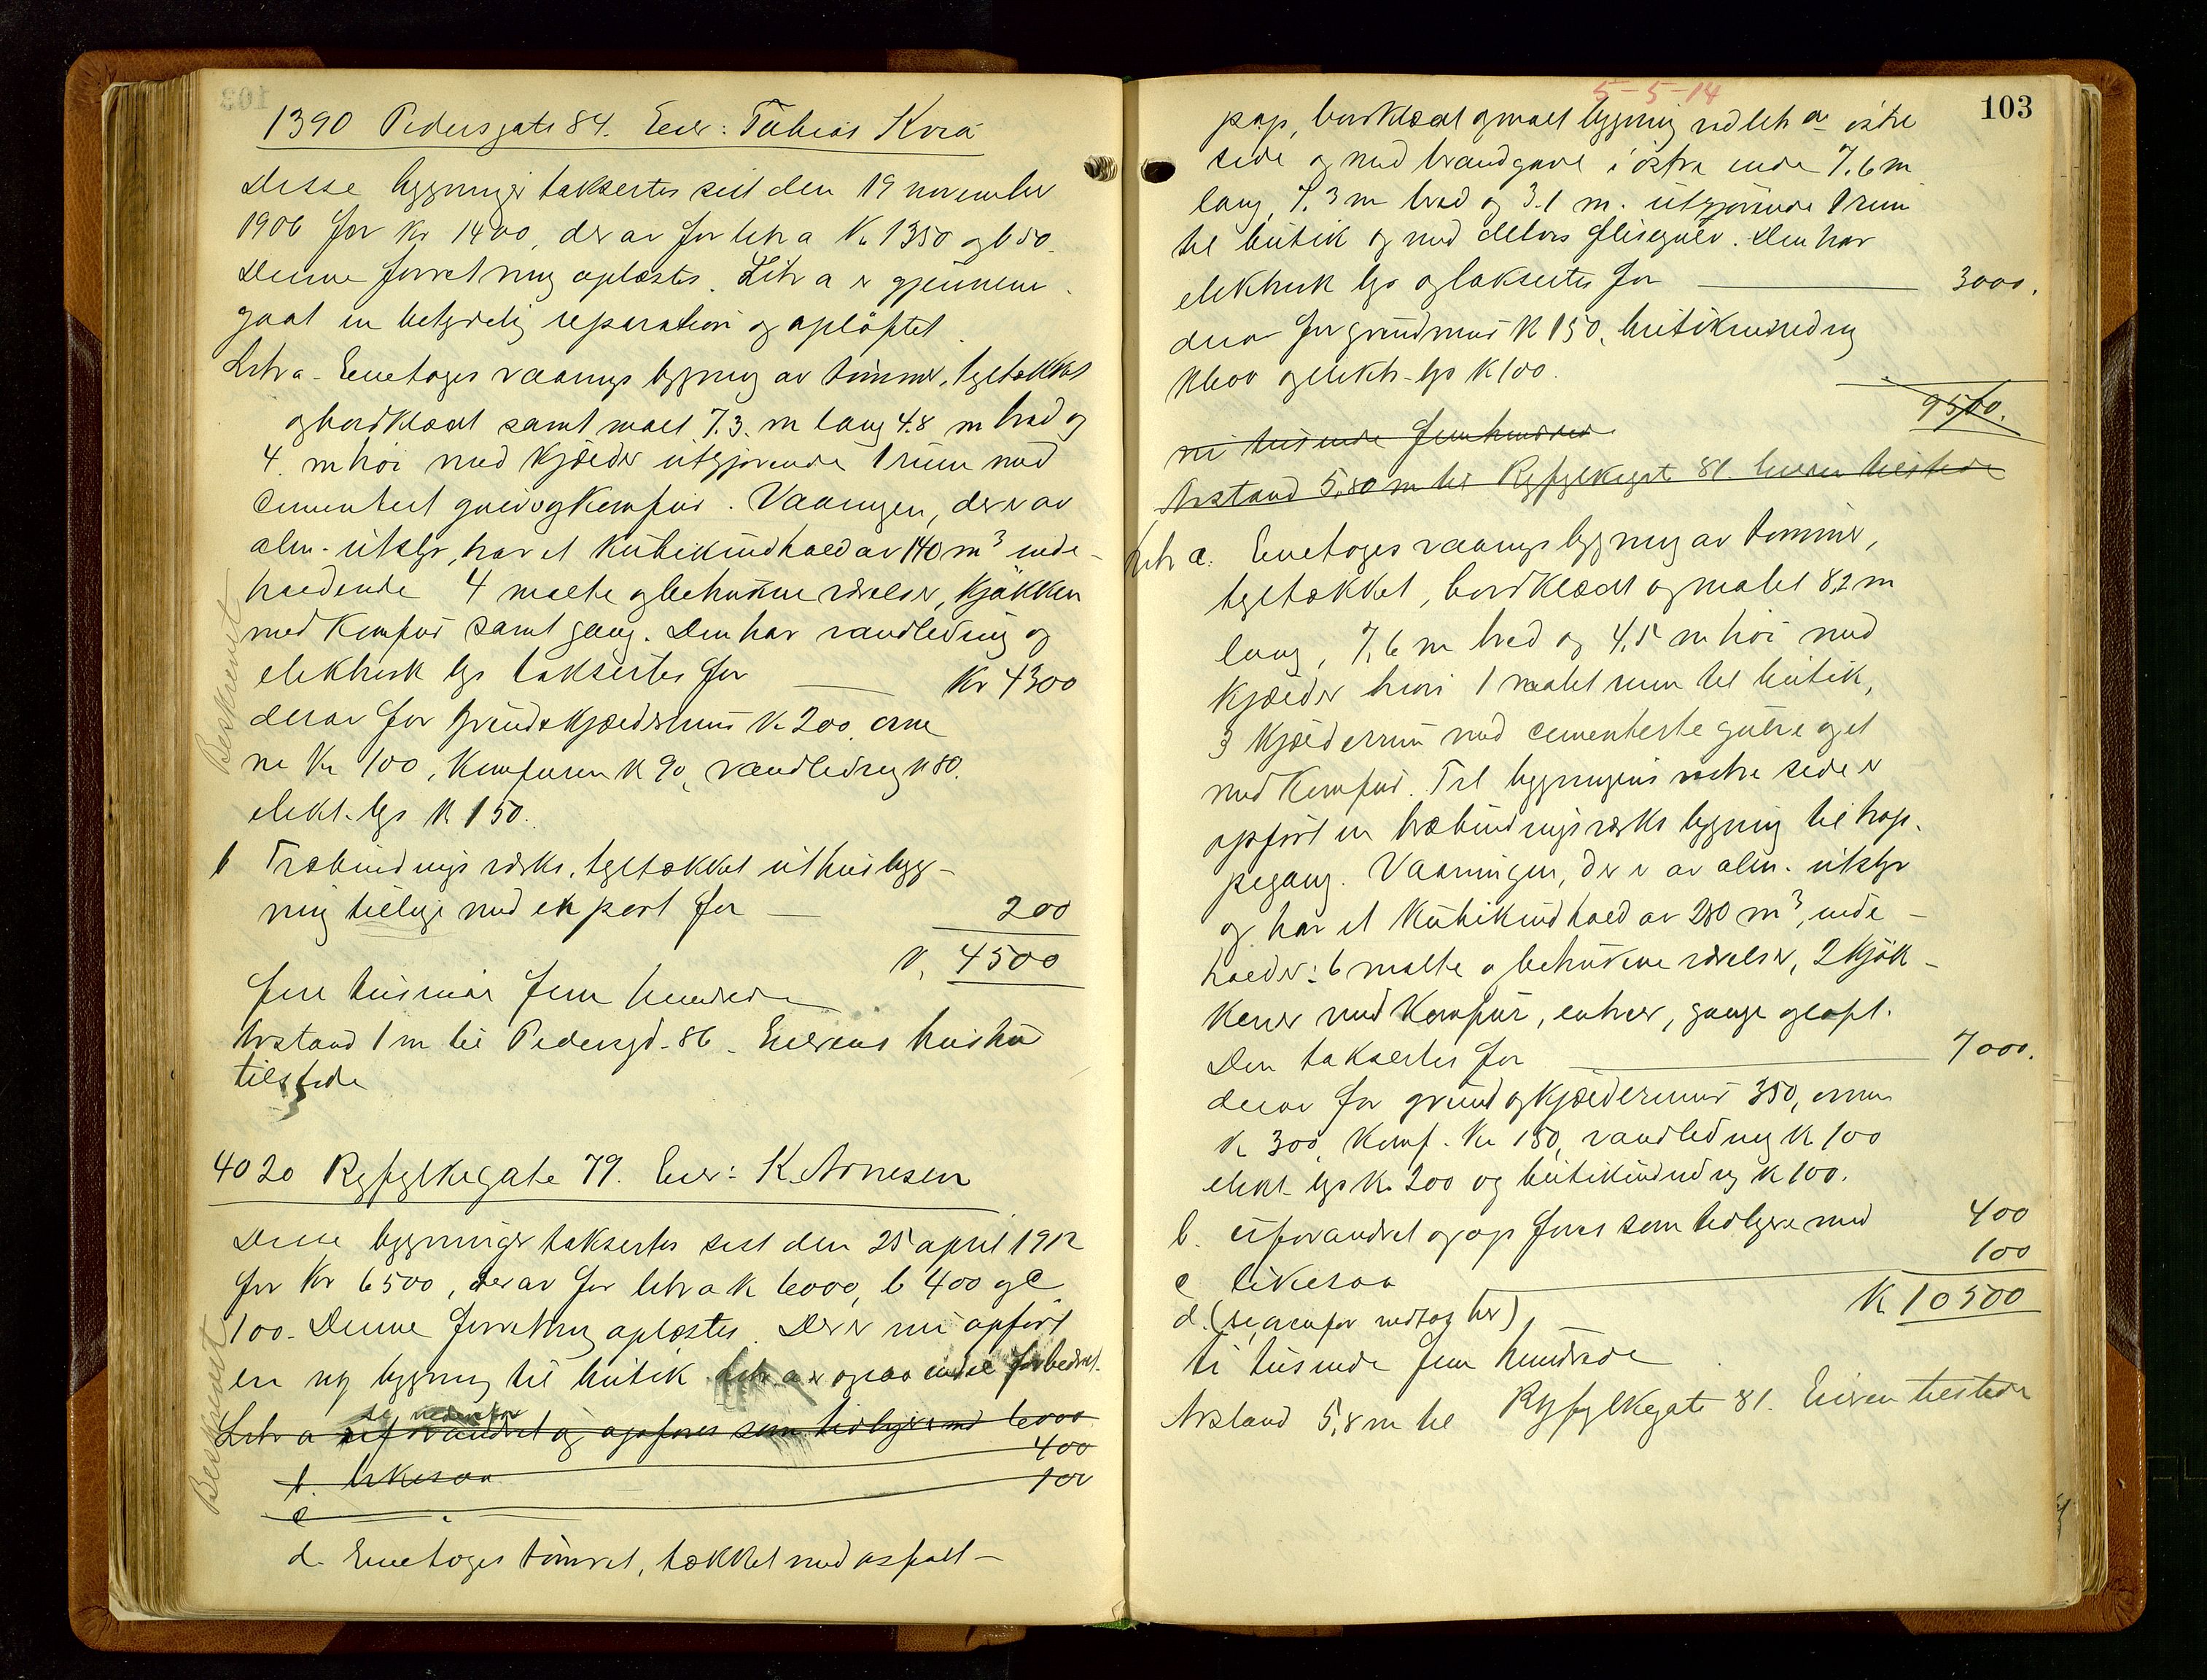 1390 Pedersgate 84. Eier: Tobias Kvia
Disse bygninger taksertes sist den 19 november
1906 for Kr 1400, derav for litr a Kr 1350 og b 50.
Denne forretning oplæstes. Litr a er gjennem
gaat en betydelig reparation og opløftet.
Litr a - Eenetages vaanings bygning av tømmer, tegltækket
og bordklædt samt malt 7.3. m lang 4.8 m bred og
4. m høi med kjælder utgjørende 1 rum med
cementert gulv og komfur. Vaaningen, der er av
alm. utstyr, har et kubikindhold av 140 m³ inde-
holdende 4 malte og betrukne værelser, kjøkken
med komfur samt gang. Den har vandledning og
elektrisk lys taksertes for Kr 4300
derav for grund & kjældermur Kr 200, ovne
ne Kr 100, Komfuren K 90, vandledning K 80.
elekt. lys K 150.
b Træbindings værks, tegltækket uthusbygg-
ning tillige med en port for 200
K. 4500
fire tusinde fem hundrede
Avstand 1 m til Pedersgd. 86. Eierens hustru
tilstede
Beskrevet
4020 Ryfylkegate 79. Eier: K. Arnesen
Disse bygninger taksertes sist den 25 april 1912
for Kr 6500, derav for litr a K 6000, b 400 og c
100. Denne forretning oplæstes. Der er nu opført
en ny bygning til butik litr a er ogsaa endel forbedret.
se nedenfor
Litr a uforandret og opføres som tidligere med 6000
b. likesaa 400
c 100
d. Eenetages tømret, tækket med asfalt-
Beskrevet
5-5-14
103
pap, bordklædt og malt bygning ved litr a østre
side og med brandgavl i østre ende 7.6 m
lang, 7.3 m bred og 3.1 m. utgjørende 1 rum
til butik og med delvis flisegulv. Den har
elektrisk lys og taksertes for 3000.
derav for grundmur K 150, butikindredning
K 600 og elektr. lys K 100.
9500.
ni tusinde femhundrede
Avstand 5,80 m til Ryfylkegate 81. Eieren tilstede
Litr a. Eenetages vaanings bygning av tømmer,
tegltækket, bordklædt og malet 8,2 m
lang, 7,6 m bred og 4,5 m høi med
kjælder hvori 1 malet rum til butik,
3 kjælderrum med cementerte gulve og et
med komfur. Til bygningens vestre side er
opført en træbindingsværks bygning til trap-
pegang. Vaaningen, der er av alm. utstyr
og har et kubikindhold av 280 m³, inde-
holder: 6 malte og betrukne værelser, 2 kjøk-
kener med komfur, entreer, gange og loft.
Den taksertes for 7000.
derav for grund og kjældermur 350, ovne
K 300, Komf. Kr 150, vandledning K 100
elekt. lys K. 200 og butikindredning K 100.
b. uforandret og opføres som tidligere med 400
c likesaa 100
d. (se ovenfor medtag her)
K 10500
ti tusinde fem hundrede
Avstand 5,8 m til Ryfylkegate 81. Eieren tilstede